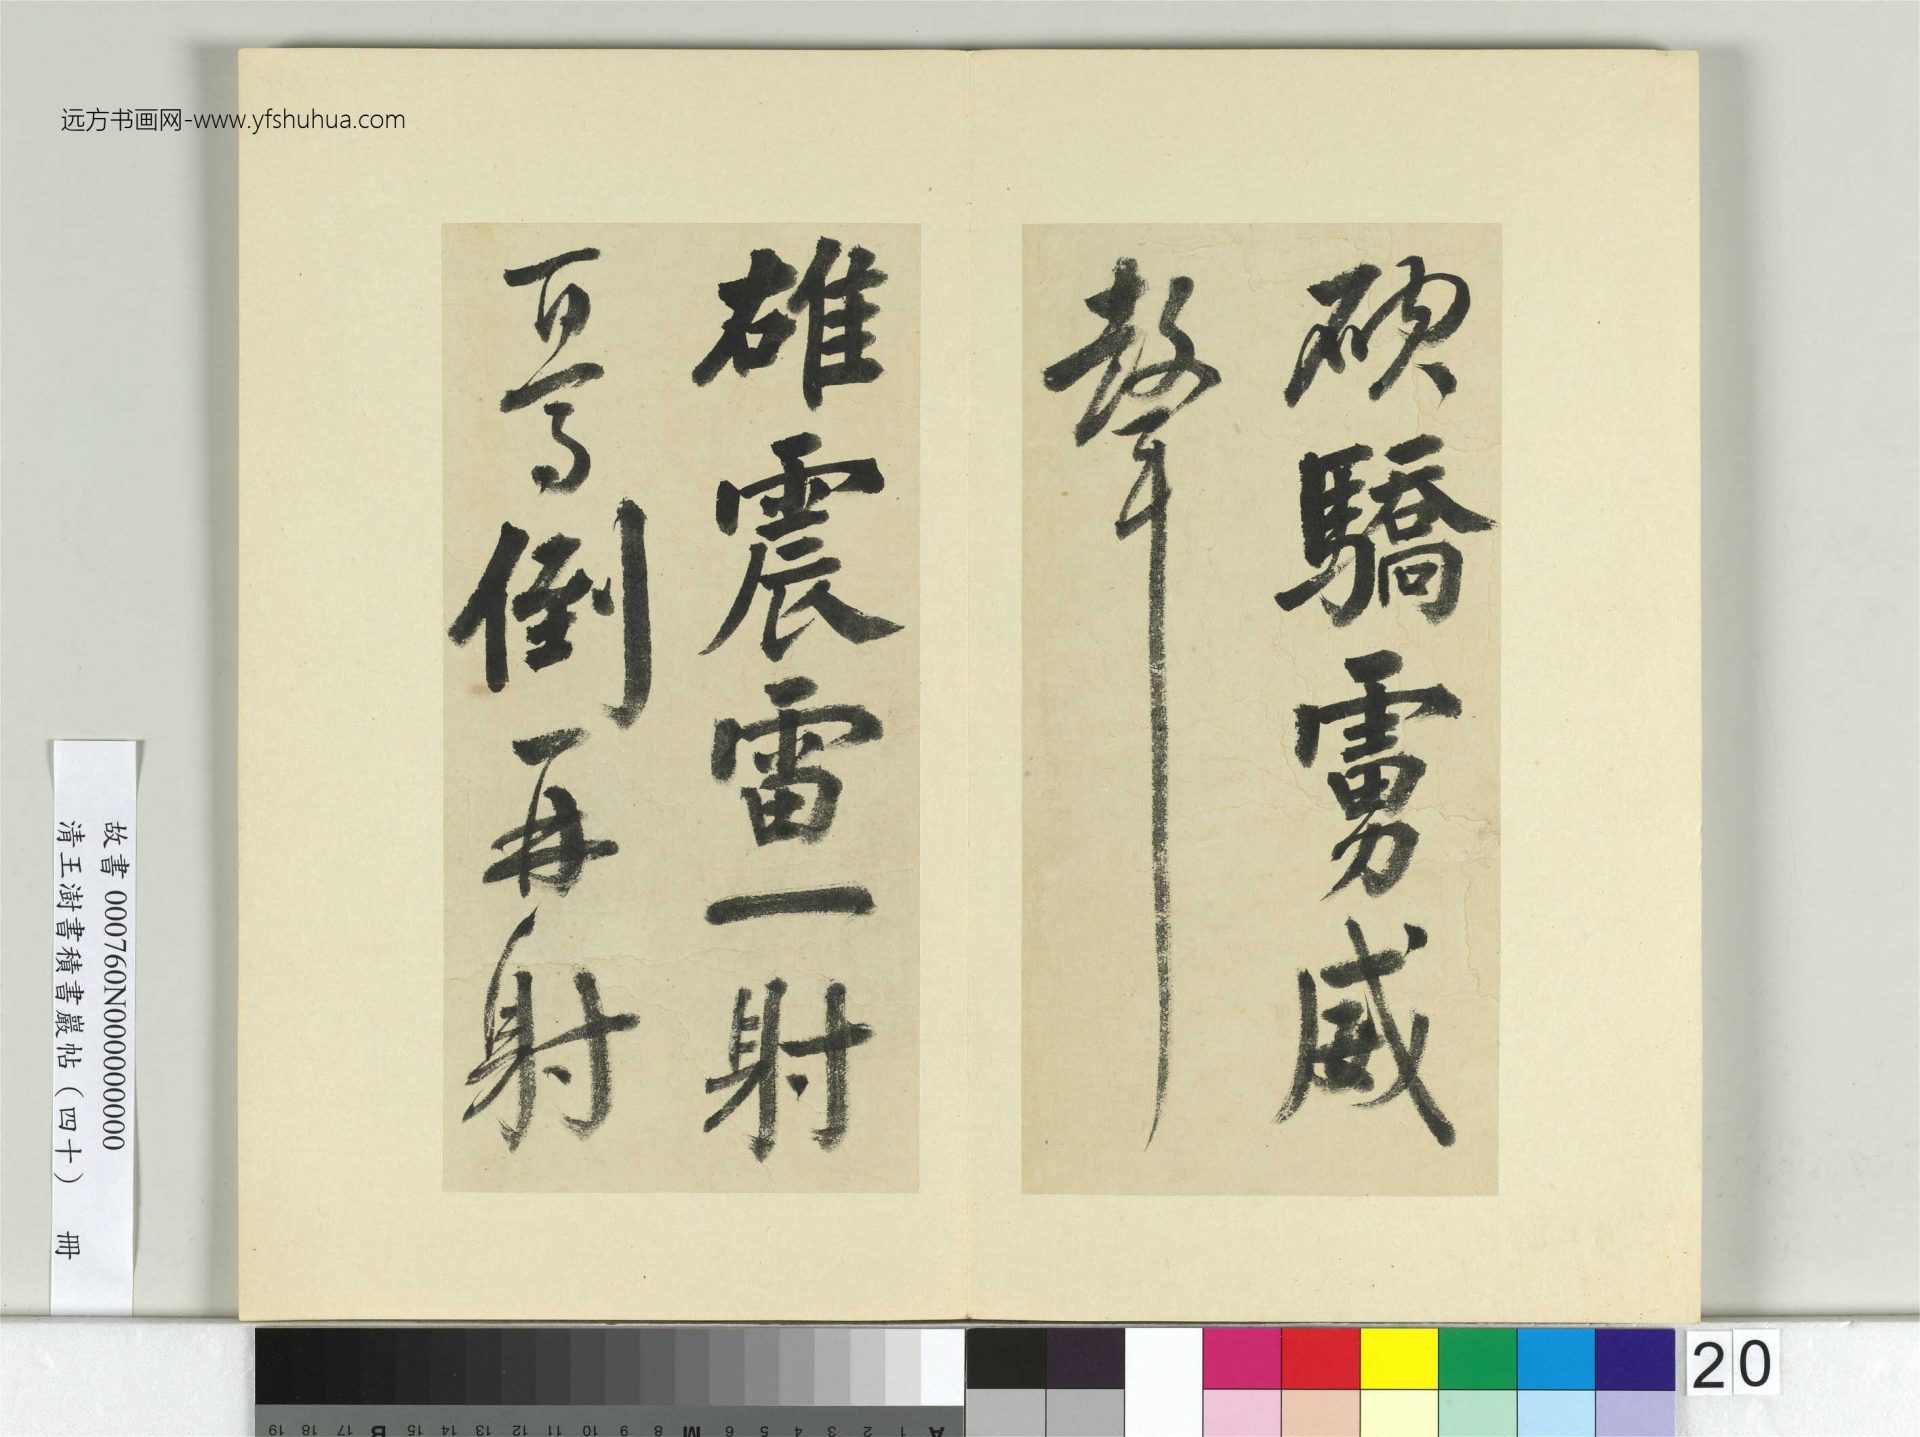 远方书画网-www.yfshuhua.com
破驕虜威
聲
雄震雷一射
百馬倒再射
故書 000760N000000000
清王澍書積書巖帖（四十） 冊
20
A 1 2 3 4 5 6 M 8 9 10 11 12 13 14 15 B 17 18 19